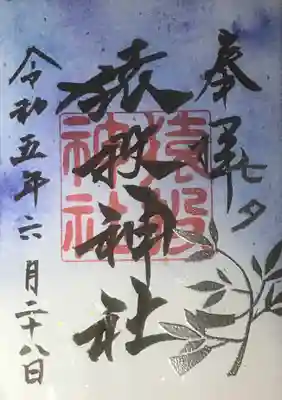 奉拝
七夕
猿投神社
猿投
神社
令和五年六月二十八日